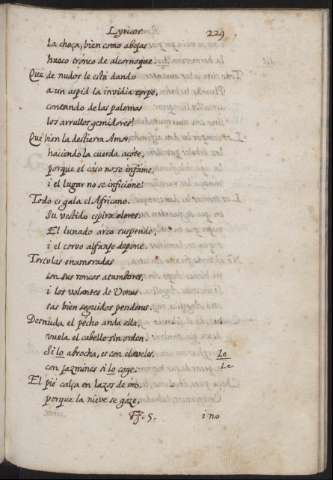 Lyricos. 229
la choça, bien como abejas
hueco tronco de alcornoque.
Que de nudos le està dando
a un aspid la invidia torpe,
contando de las palomas
los arrullos gemidores!
Que bien la destierra Amor,
haciendo la cuerda açote,
porque el caso no se infame,
i el lugar no se inficione!
Todo es gala el Africano.
Su vestido espira olores.
El lunado arco suspende,
i el corvo alfange depone.
Tortolas enamoradas
son sus roncos atambores,
i los volantes de Venus
sus bien seguidos pendones.
Desnuda el pecho anda ella,
vuela el cabello sin orden.
Si lo abrocha, es con claveles,
con jazmines si lo coge.
El pie calça en lazos de oro,
porque la nieve se goze,
Ff. 5. i no